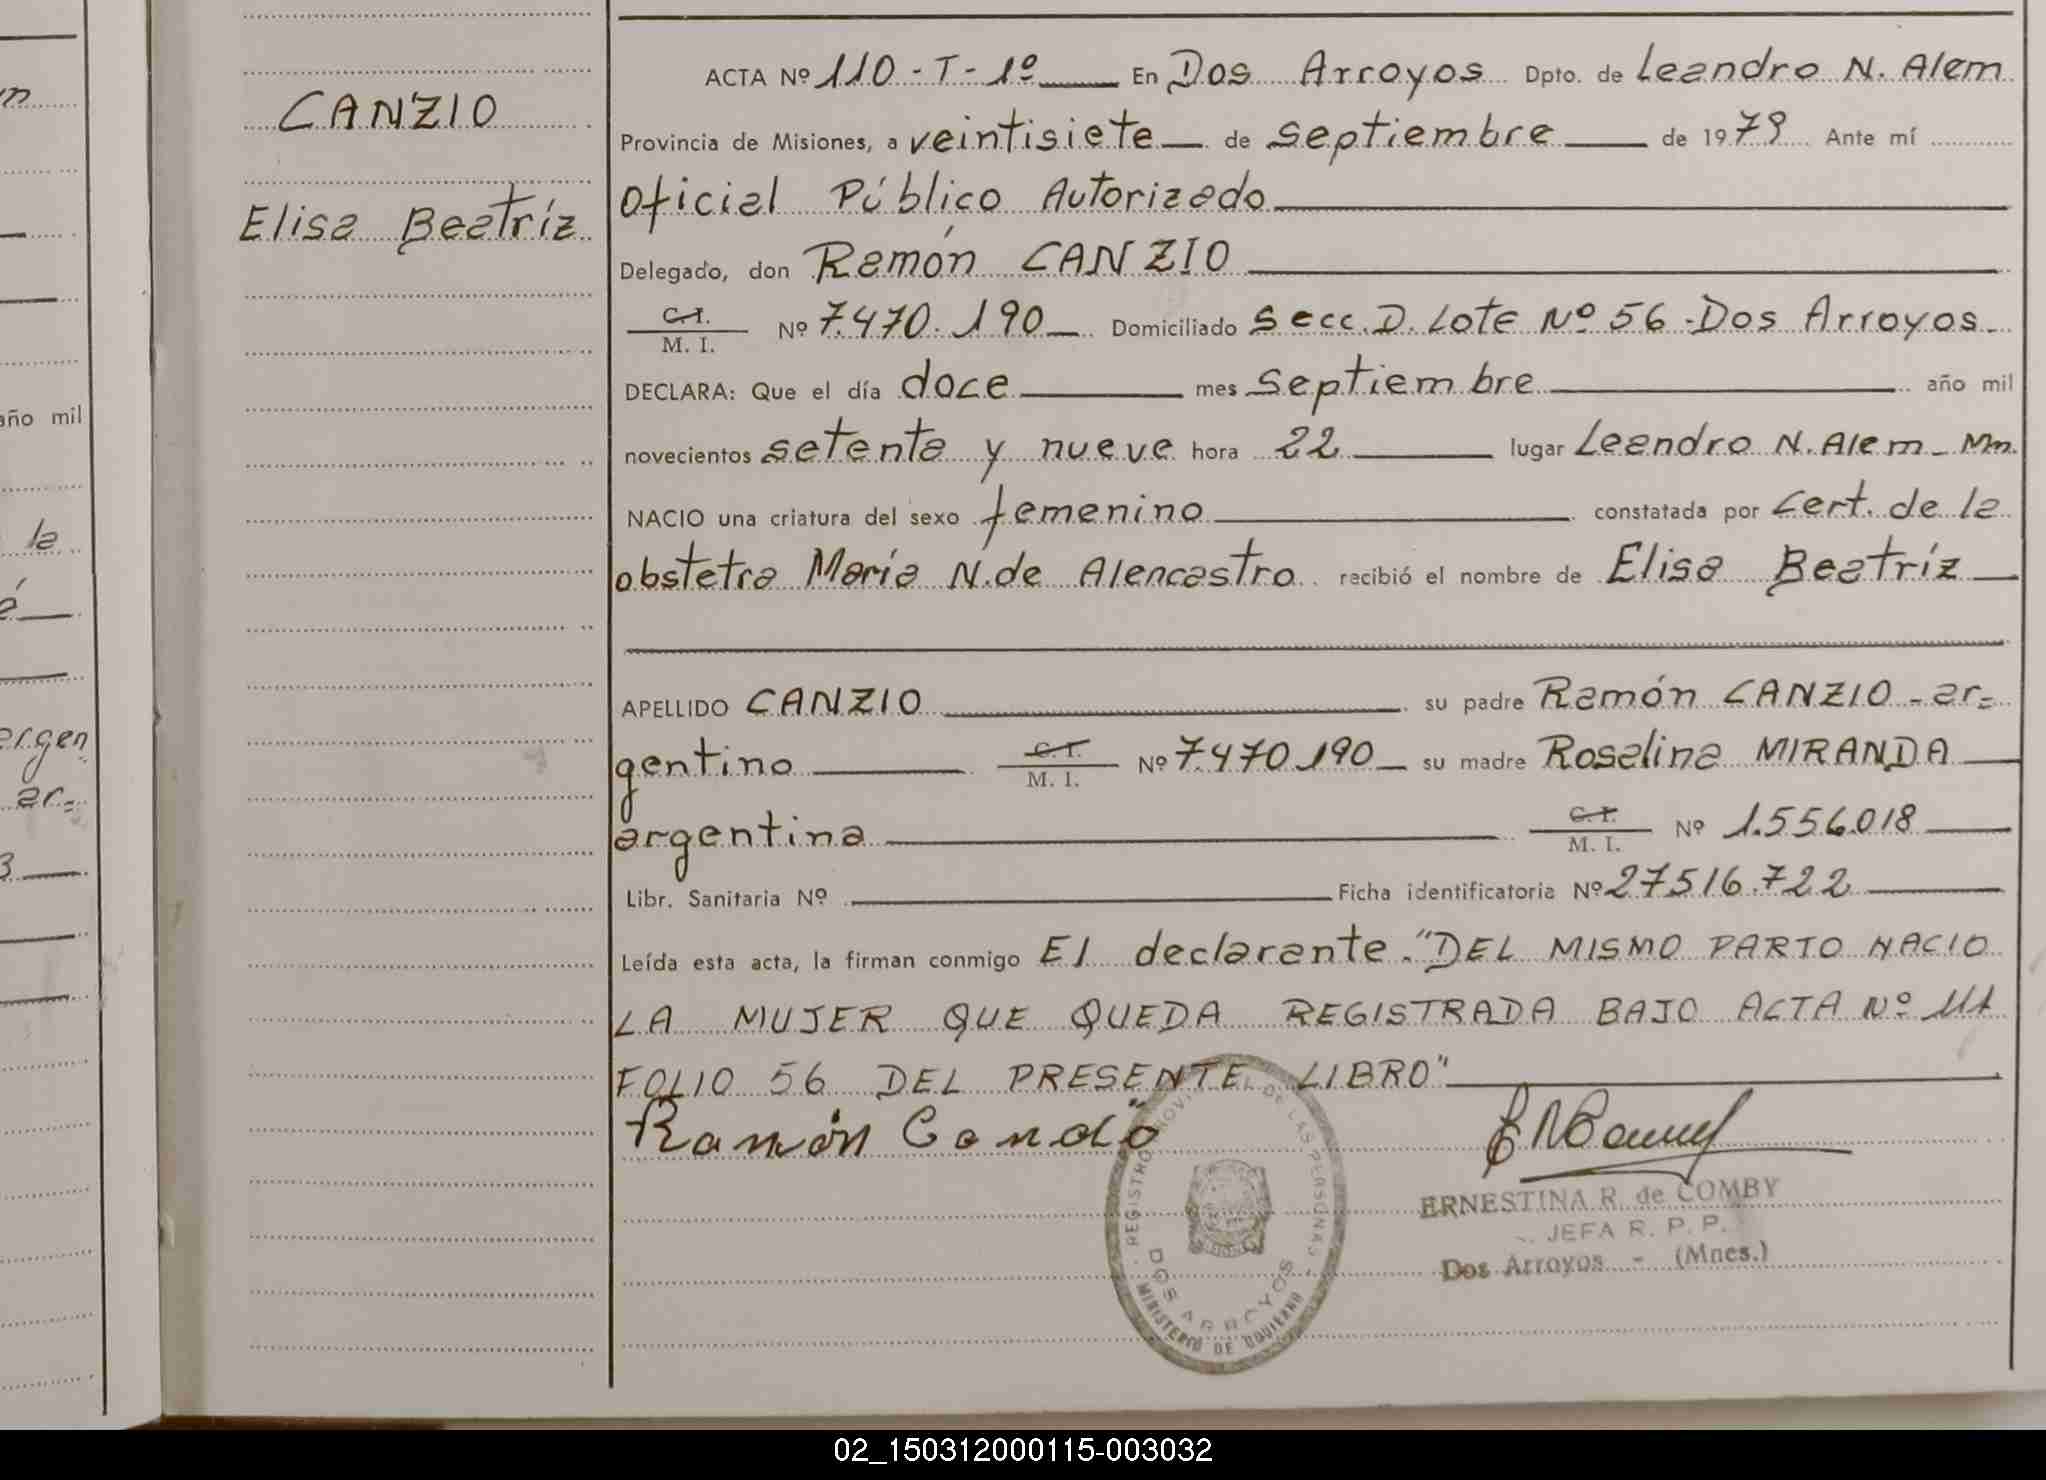 CANZIO
Elisa Beatríz
ACTA Nº 110 - T - 1º En Dos Arroyos Dpto. de Leandro N. Alem
Provincia de Misiones, a veintisiete de septiembre de 1979. Ante mí
Oficial Público Autorizado
Delegado, don Ramón CANZIO
C.I.
M. I. Nº 7.470.190 Domiciliado Secc. D. Lote Nº 56 - Dos Arroyos
DECLARA: Que el día doce mes septiembre año mil
novecientos setenta y nueve hora 22 lugar Leandro N. Alem - Mn.
NACIO una criatura del sexo femenino constatada por Cert. de la
obstetra María N. de Alencastro recibió el nombre de Elisa Beatríz
APELLIDO CANZIO su padre Ramón CANZIO - ar=
gentino C.I.
M. I. Nº 7.470.190 su madre Rosalina MIRANDA
argentina C.I.
M. I. Nº 1.556.018
Libr. Sanitaria Nº Ficha identificatoria Nº 27516.722
Leída esta acta, la firman conmigo El declarante. "DEL MISMO PARTO NACIO
LA MUJER QUE QUEDA REGISTRADA BAJO ACTA Nº 111
FOLIO 56 DEL PRESENTE LIBRO"
Ramón
REGISTRO PROVINCIAL DE LAS PERSONAS
DOS ARROYOS
MINISTERIO DE GOBIERNO
ERNESTINA R. de COMBY
JEFA R. P. P.
Dos Arroyos - (Mnes.)
año mil
la
argen
ar=
02_150312000115-003032